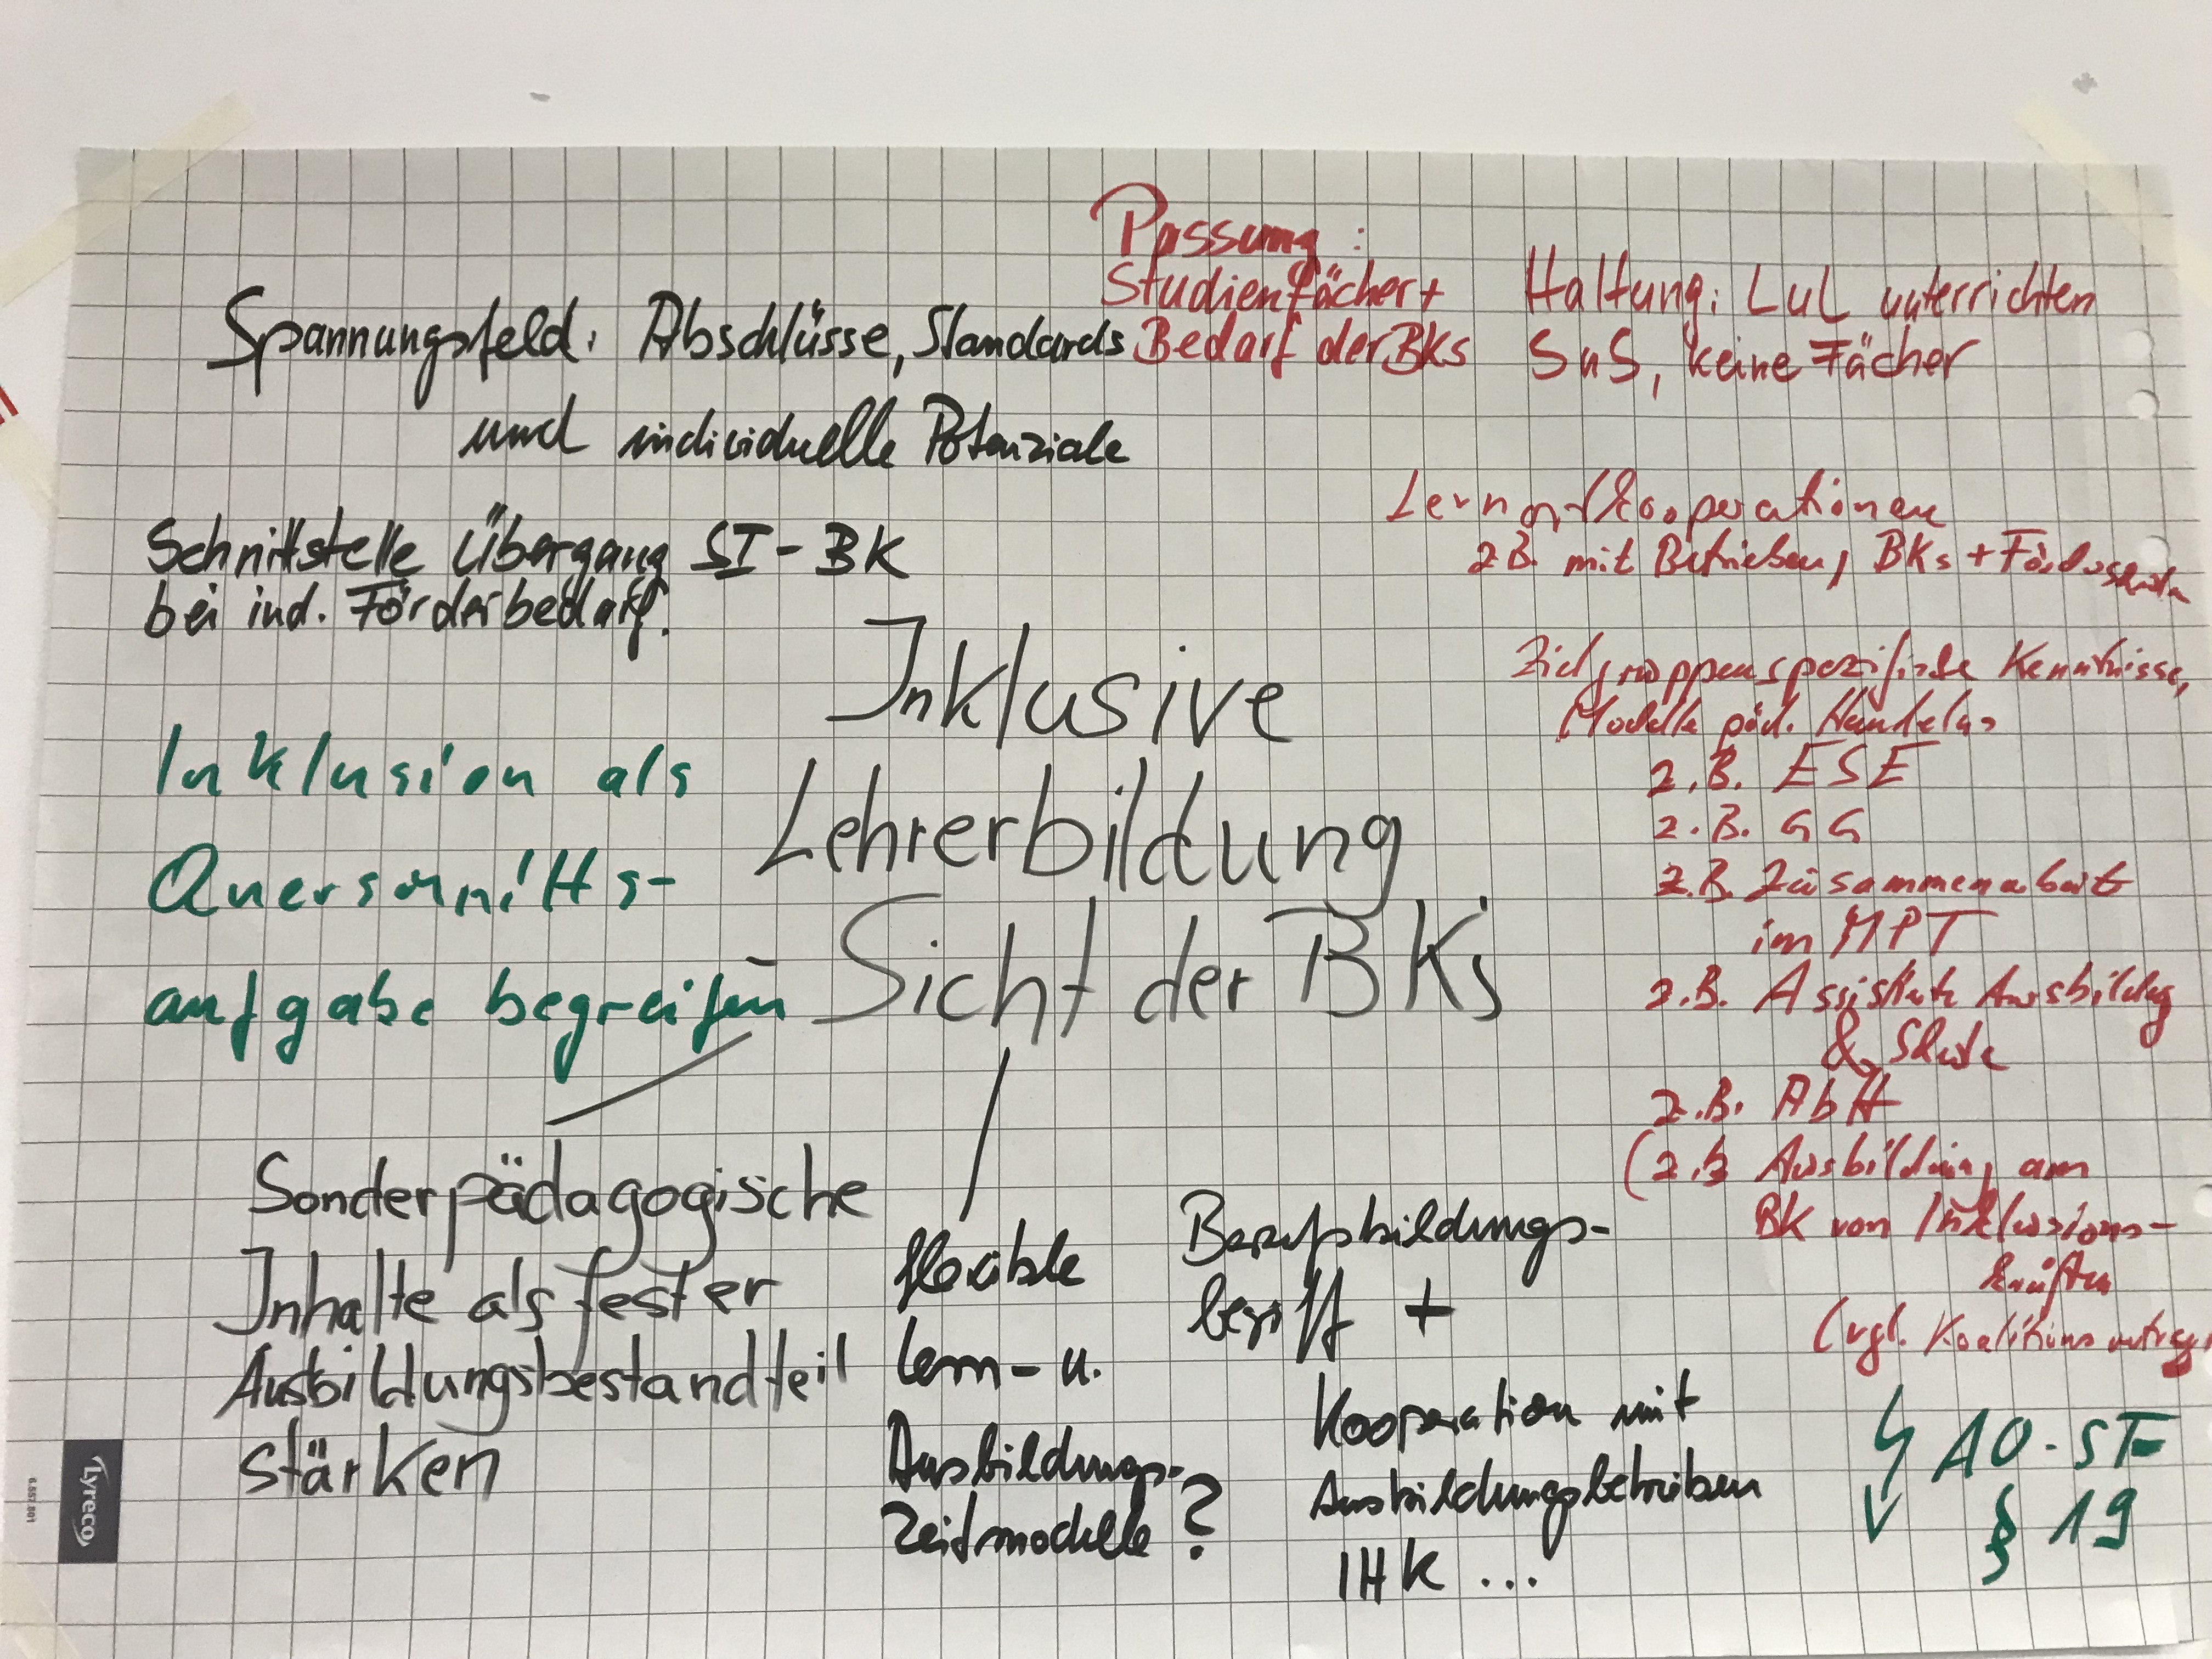 Passung:
Studienfächer +
Bedarf der BKs
Haltung: LuL unterrichten
SuS, keine Fächer
Spannungsfeld: Abschlüsse, Standards
und individuelle Potenziale
Lernort/kooperationen
z.B. mit Betrieben, BKs +
Schnittstelle Übergang SI - BK
bei ind. Förderbedarf.
Zielgruppenspezifische Kenntnisse,
Modelle päd. Handelns
z.B. ESE
z.B. GG
z.B. Zusammenarbeit
im MPT
z.B. Assistierte Ausbildung
&
z.B. AbH
(z.B Ausbildung am
BK von Inklusions-
kräften
(vgl. Koalitionsvertrag
Inklusive
Lehrerbildung
Sicht der BKs
Inklusion als
Querschnitts-
aufgabe begreifen
Sonderpädagogische
Inhalte als fester
Ausbildungsbestandteil
stärken
flexible
Lern- u.
Ausbildungs-
zeitmodelle?
Berufsbildungs-
begriff +
Kooperation mit
Ausbildungsbetrieben
IHK ...
AO-SF
§ 19
Lyreco
6.557.801